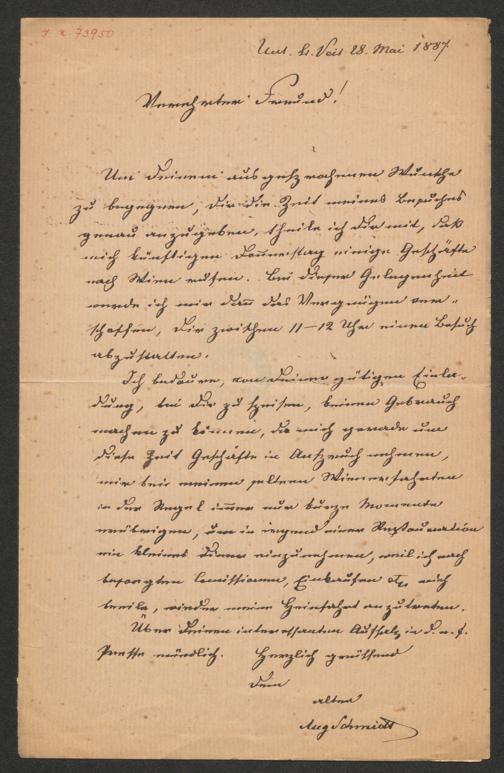 I N 73950
Unt. St. Veit 28. Mai 1887
Verehrter Freund!
Um Deinem ausgesprochenen Wunsche
zu begegnen, Dir die Zeit meines Besuches
genau anzugeben, theile ich Dir mit, daß
mich künftigen Donnerstag einige Geschäfte
nach Wien rufen. Bei dieser Gelegenheit
werde ich mir dann das Vergnügen ver-
schaffen, Dir zwischen 11–12 Uhr einen Besuch
abzustatten.
Ich bedaure, von Deiner gütigen Einla-
dung, bei Dir zu speisen, keinen Gebrauch
machen zu können, da mich gerade um
diese Zeit Geschäfte in Anspruch nehmen,
mir bei meinen seltenen Wienerfahrten
in der Regel immer nur kurze Momente
erübrigen, um in irgend einer Restauration
ein kleines Diner einzunehmen, weil ich nach
besorgten Comissionen, Einkäufen etc. mich
beeile, wieder meine Heimfahrt anzutreten.
Über Deinen interessanten Aufsatz in d. n. f.
Presse mündlich. Herzlich grüßend
Dein
alter
Aug Schmidt